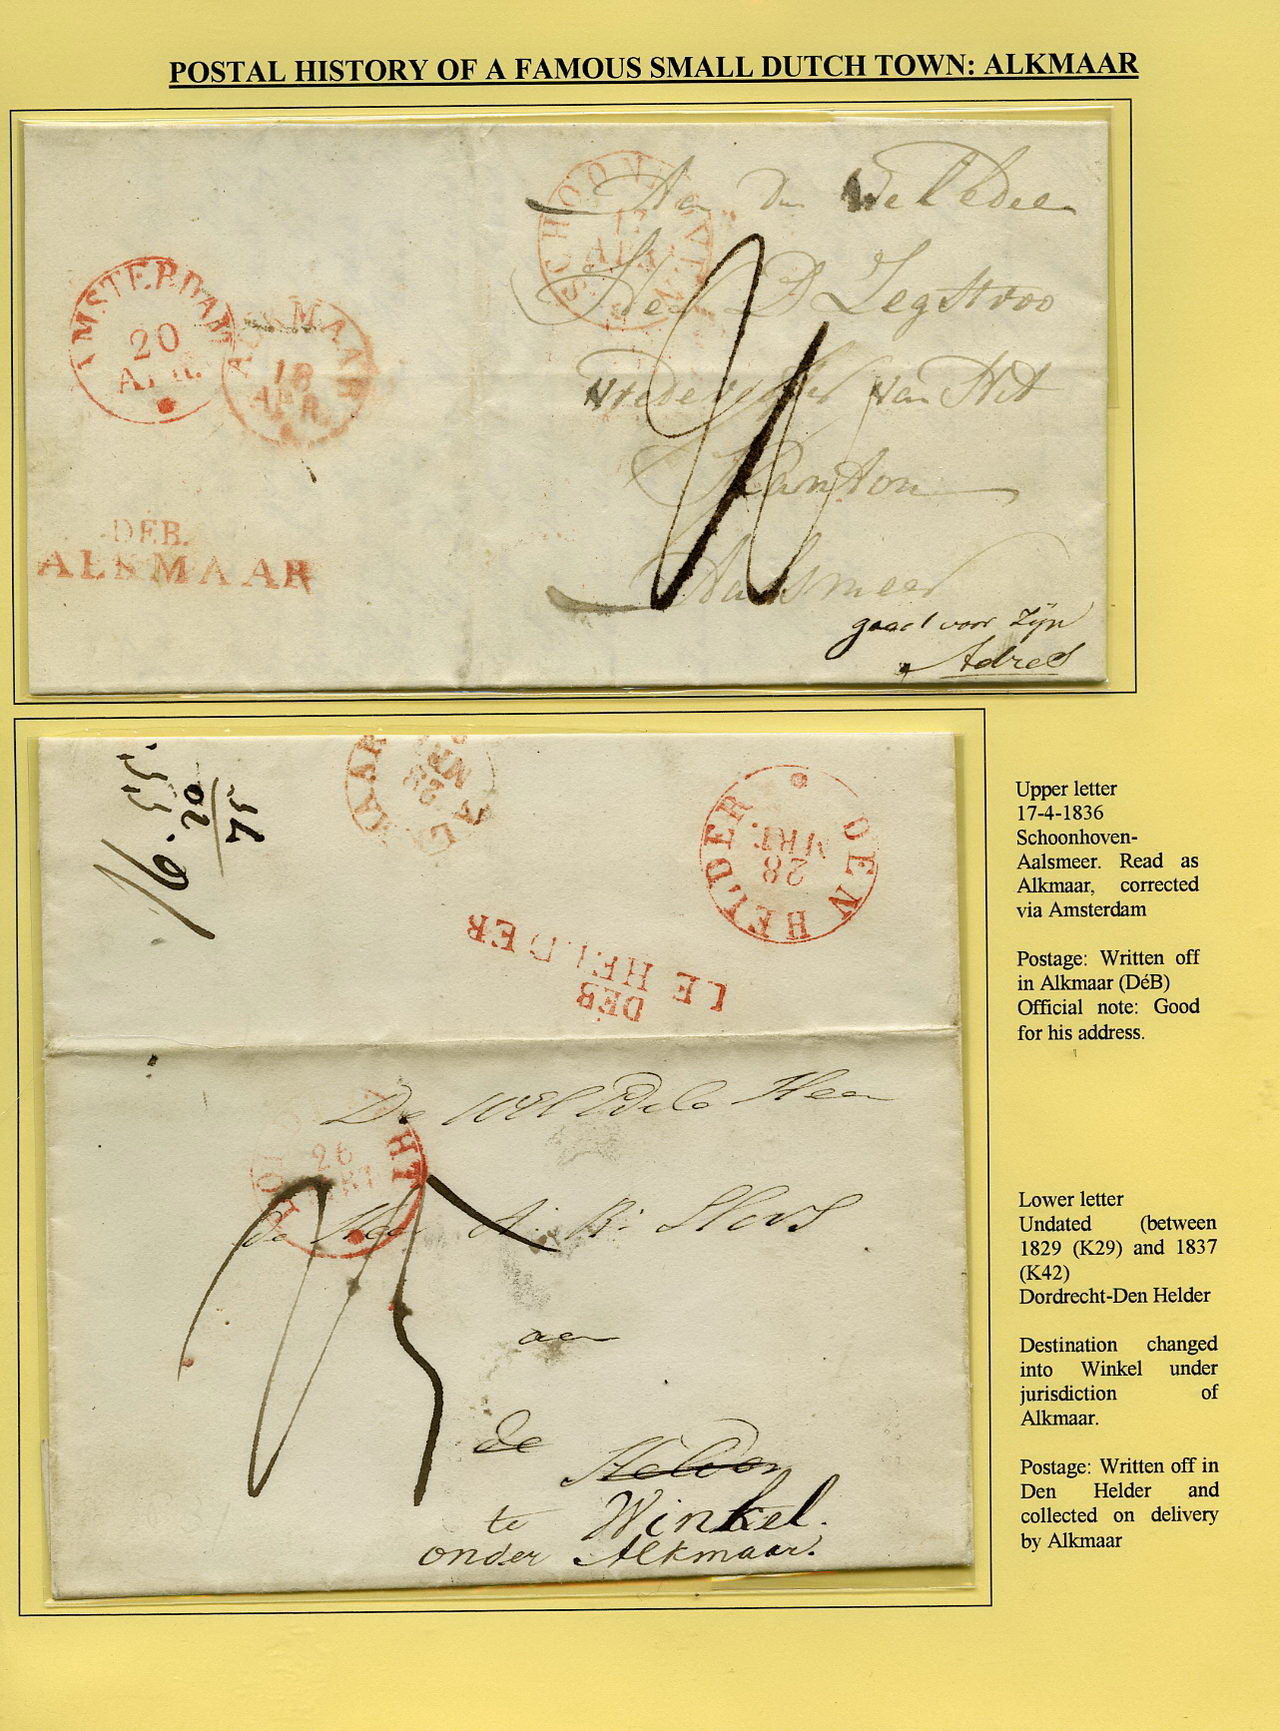 POSTAL HISTORY OF A FAMOUS SMALL DUTCH TOWN: ALKMAAR
SCHOONHOVEN
17
APR
AMSTERDAM
20
APR.
ALKMAAR
18
APR.
DEB.
ALKMAAR
Aan Den Wel Edele
Heer D Legstroo
van Het
Kanton
Aalsmeer
goed voor zijn
Adres
ALKMAAR
28
MRT
DEN HELDER
28
MRT.
DEB
LE HELDER
26
De Wel Edele Heer
de Heer
aan
de Helder
te Winkel.
onder Alkmaar.
Upper letter
17-4-1836
Schoonhoven-
Aalsmeer. Read as
Alkmaar, corrected
via Amsterdam
Postage: Written off
in Alkmaar (DéB)
Official note: Good
for his address.
Lower letter
Undated (between
1829 (K29) and 1837
(K42)
Dordrecht-Den Helder
Destination changed
into Winkel under
jurisdiction of
Alkmaar.
Postage: Written off in
Den Helder and
collected on delivery
by Alkmaar